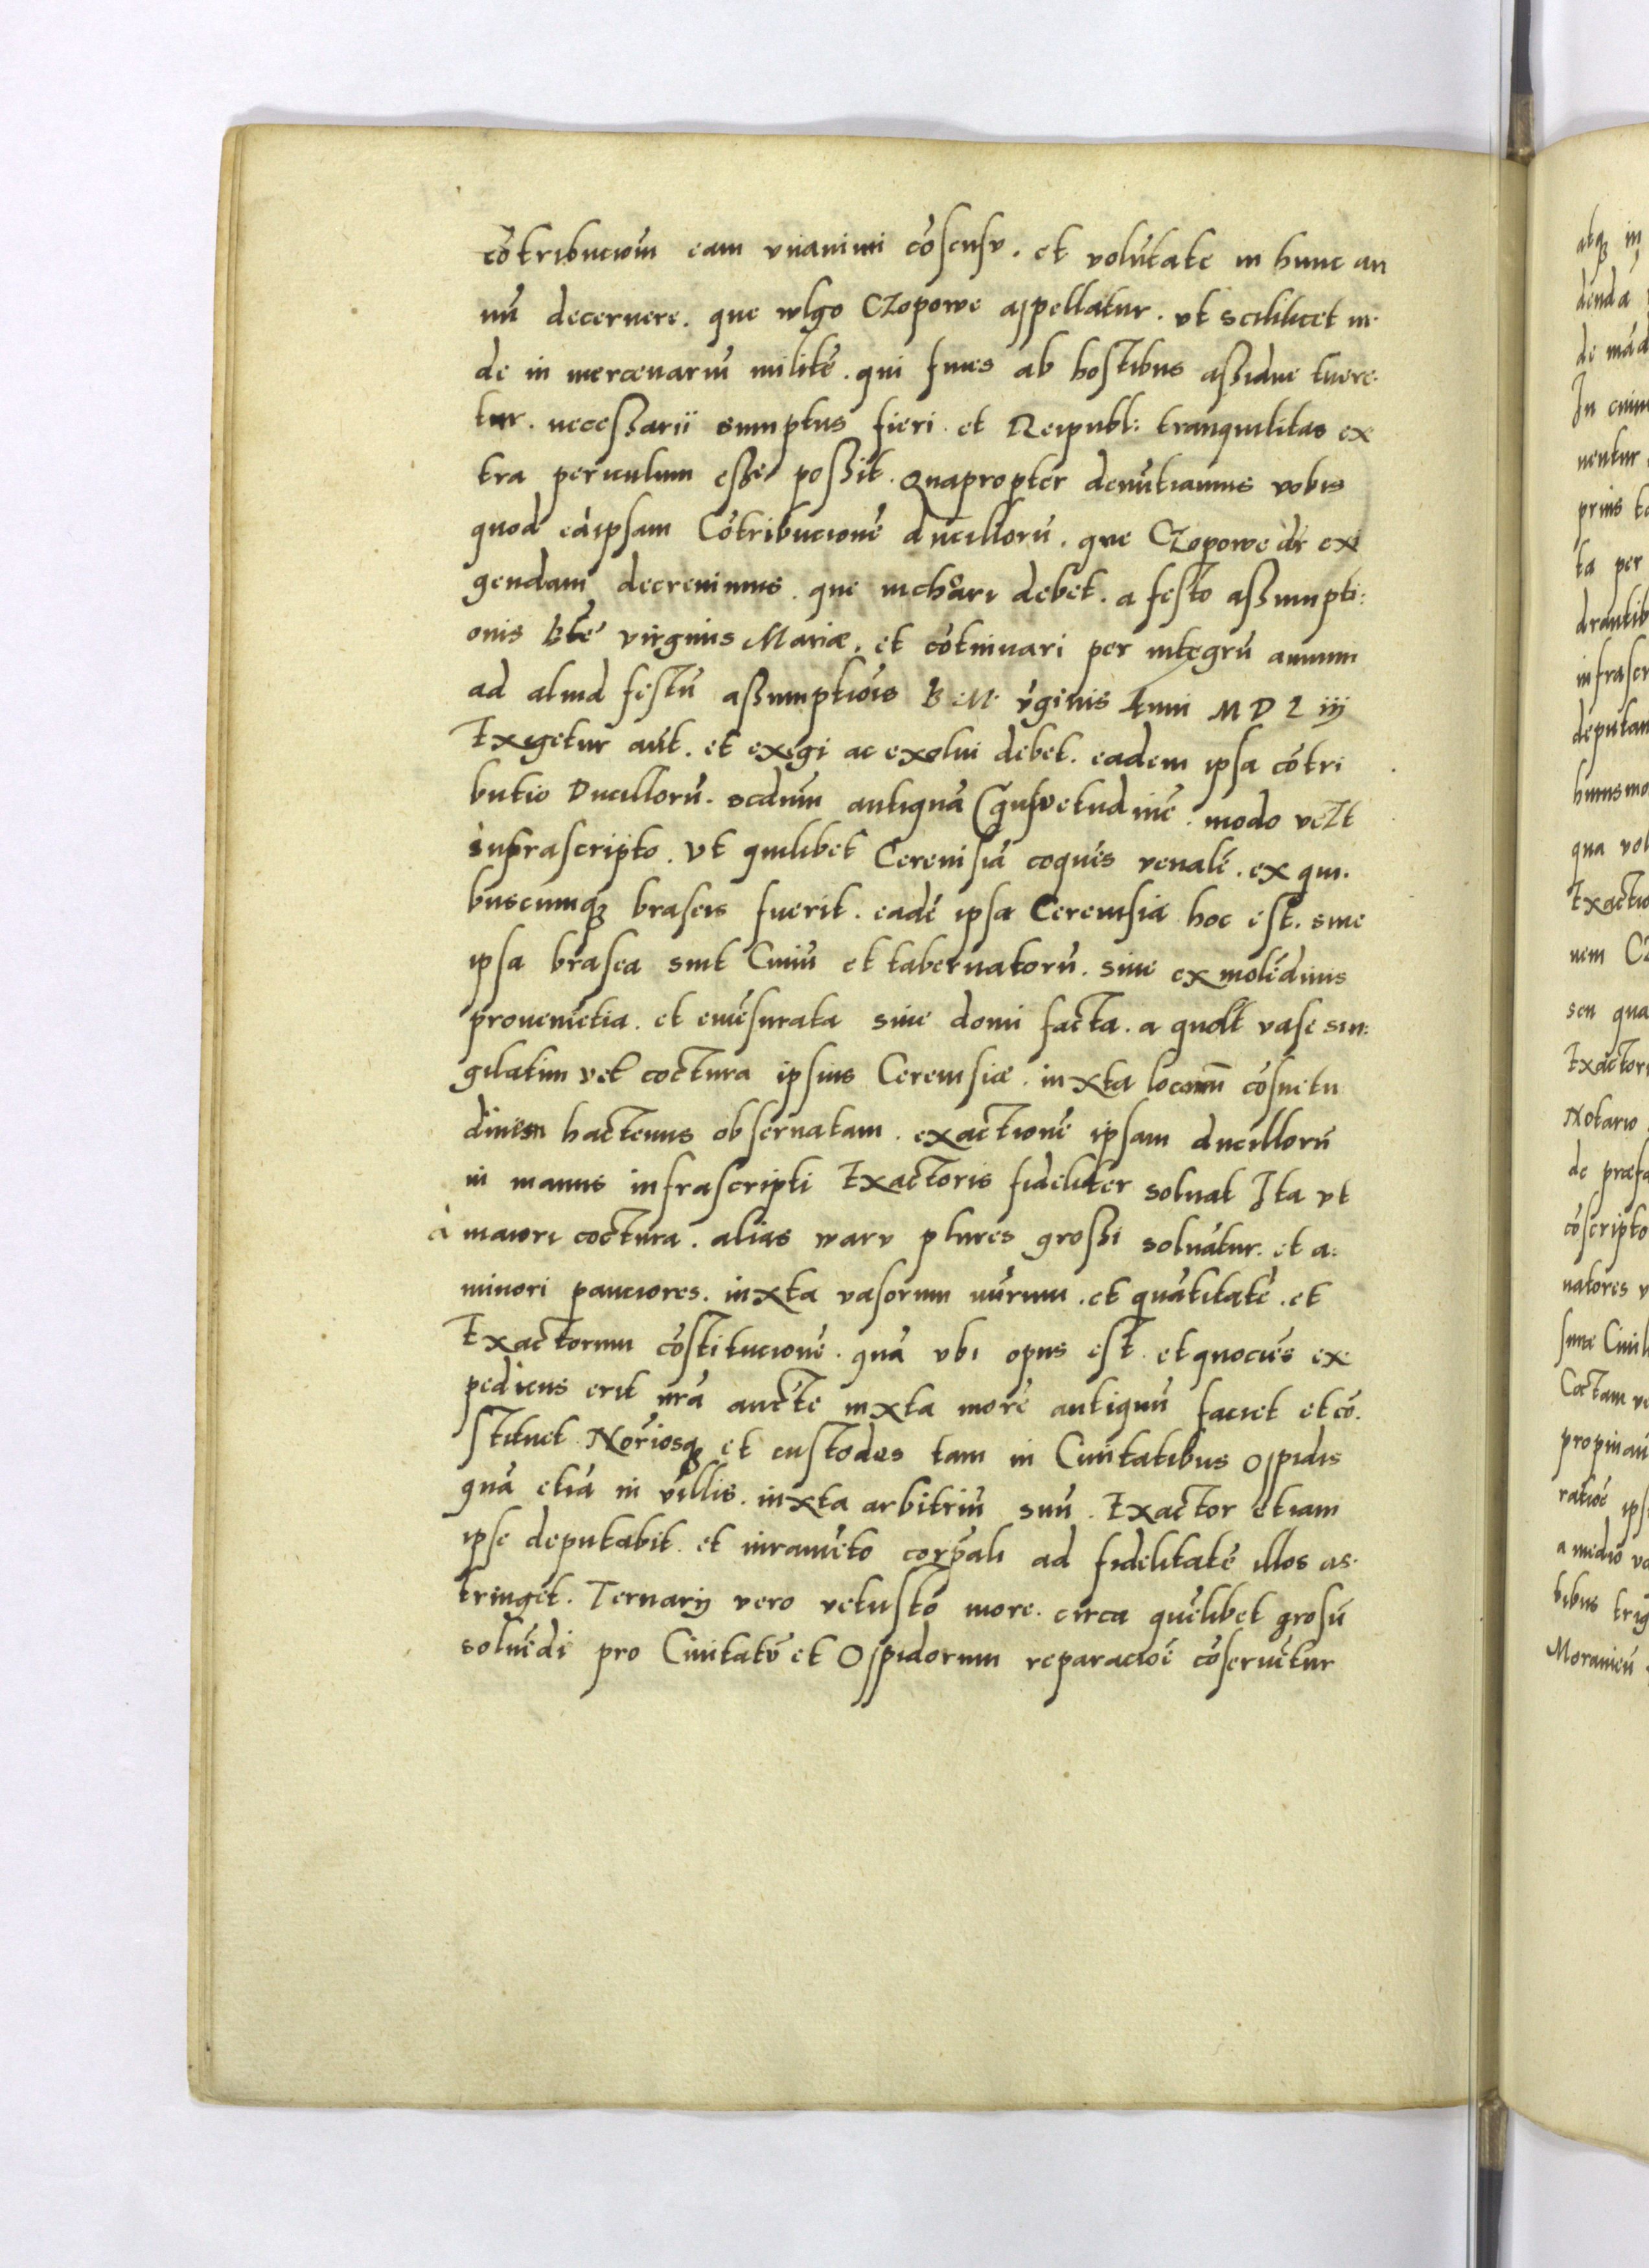 cōtribuciom̄ eam vnanimi cōsensv. et volūtate in hunc an
nū decernere. que wlgo Czopowe appellatur. vt scilicet in-
de in mercenariū militē. qui fines ab hostibus aßidue tuere-
tur. neceßarii sumptus fieri et Reipubl: tranquilitas ex
tra periculum eße poßit. Quapropter denūtiamus vobis
quod eāipsam Cōtribucionē ducillorū. que Czopowe dr̄ exi
gendam decreuimus. que inchoari debet. a festo aßumpti:
onis btē virginis Mariæ. et cōtinuari per integrū annum
ad aliud festū aßumptiōis B. M. v̄ginis Anni M D L iij
Exigetur aūt. et exegi ac exolui debet. eadem ipsa cōtri
butio Ducillorū. scdum̄ antiquā Cōsvetudinē. modo
suprascripto. Vt quilibet Cereuisiā coquēs venalē. ex qui-
buscumq; braseis fuerit. eadē ipsa Cereuisia hoc est. siue
ipsa brasea sint Ciuiū et tabernatorū. siue ex molēdinis
prouenietia. et emēsurata siue domi facta. a quolt vase sin:
gilatim vel coctura ipsius Cereuisiæ. iuxta locorum̄ cōsuetu
dinem hactenus obseruatam. exactionē ipsam ducillorū
in manus infrascripti Exactoris fideliter soluat Ita vt
à maiori coctura. alias warv plures großi soluātur. et a:
minori pauciores. iuxta vasorum nūrum. et quātitatē. et
Exactorum cōstitucionē. quā vbi opus est et quociēs ex
pediens erit nrā auctē iuxta morē antiquū faciet et cō-
stituet Nōriosq; et custodes tam in Ciuitatibus Oppidis
quā etiā in villis. iuxta arbitriū suū. Exactor etiam
ipse deputabit. et iuramēto corp̄ali ad fidelitatē illos as-
tringet. Ternarij vero vetusto more. circa quēlibet grosū
soluēdi pro Ciuitatū et Oppidorum reparacioē cōseruētur